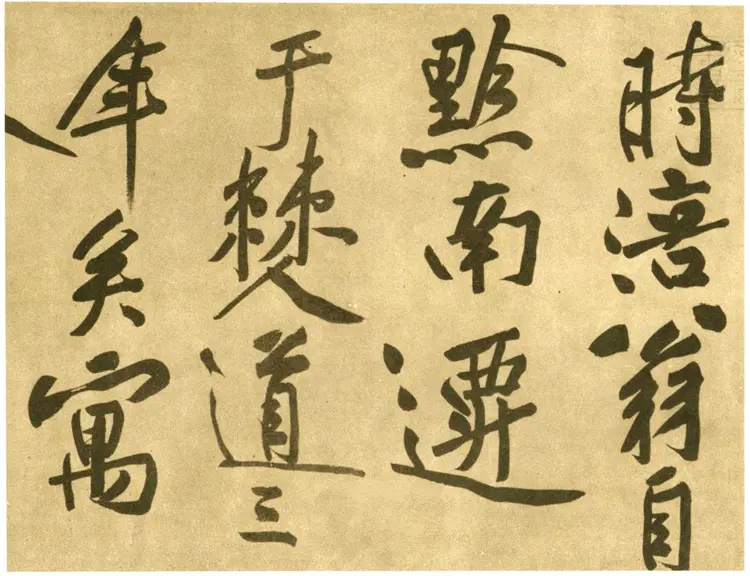 時涪翁自
黔南遷
于僰道三
年矣寓